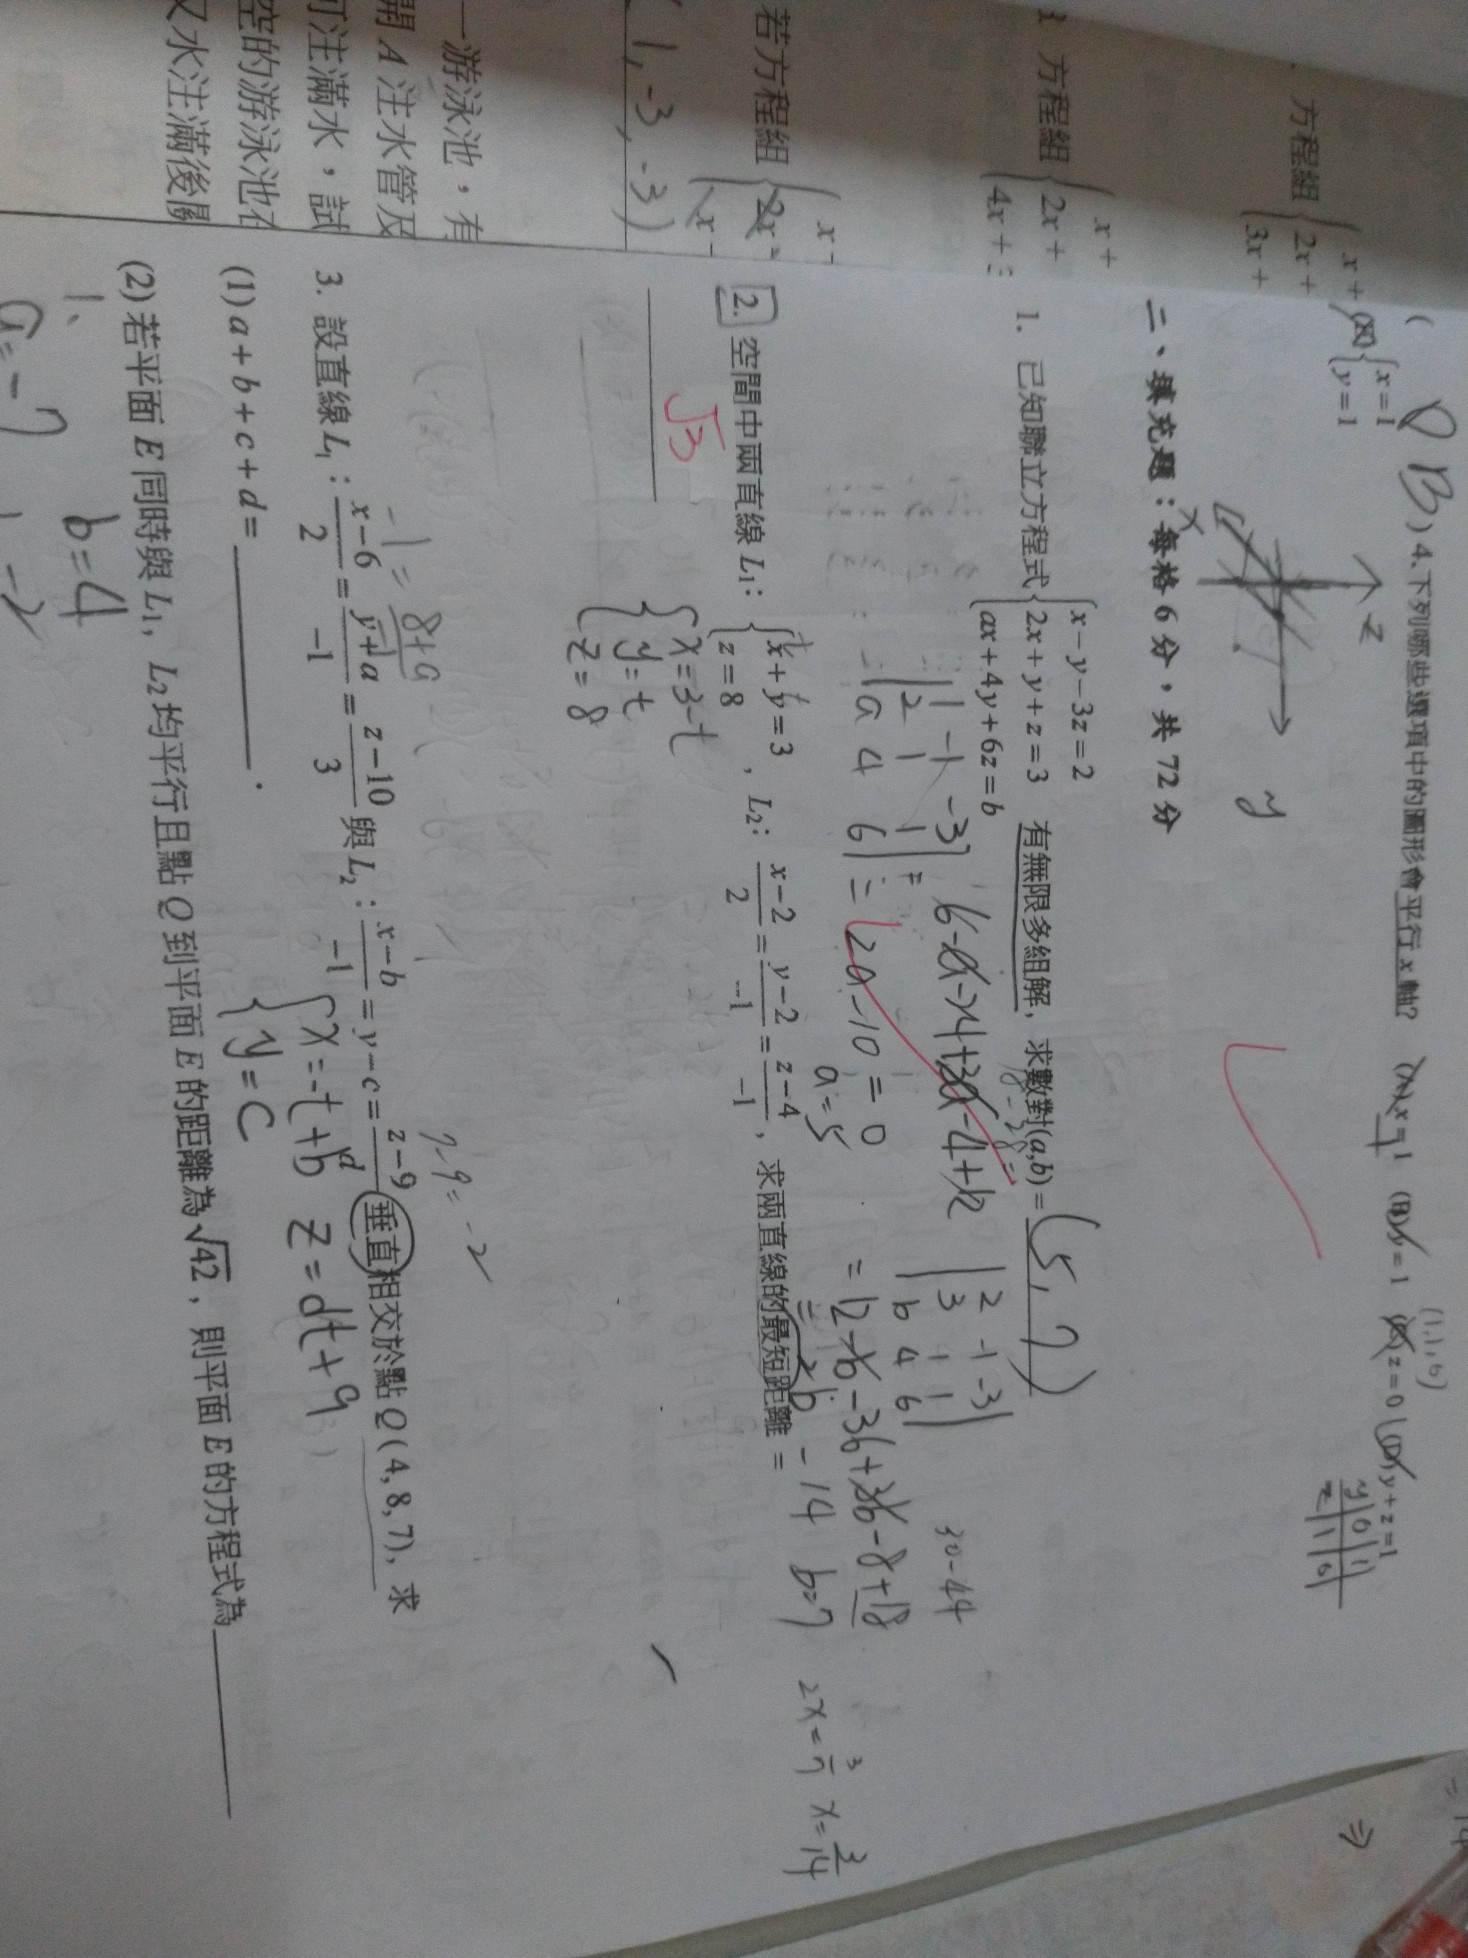 ( D B ) 4.下列哪些選項中的圖形會平行 x 軸? (A) x=1 (B) y=1 (C) z=0 (D) y+z=1
(E) { x=1
y=1
(1,1,0)
y 0 1
z 1 0
z
x
y
二、填充題:每格 6 分,共 72 分
1. 已知聯立方程式 { x−y−3z=2
2x+y+z=3
ax+4y+6z=b
有無限多組解,求數對(a,b)= (5,7)
| 1 -1 -3 |
| 2 1 1 |
| a 4 6 | =
= 2a-10=0
a=5
| 2 -1 -3 |
| 3 1 1 |
| b 4 6 |
30-44
=12-b-36+3b-8+18
= 2b -14 b=7
2. 空間中兩直線 L1: { x+y=3
z=8
, L2: (x−2)/2 = (y−2)/−1 = (z−4)/−1 ,求兩直線的最短距離=
√3
{ x=3-t
y=t
z=8
2x=3/7 x=3/14
3. 設直線 L1: (x−6)/2 = (y+a)/−1 = (z−10)/3 與 L2: (x−b)/−1 = y−c = (z−9)/d 垂直相交於點 Q(4,8,7),求
-1 = (8+a)/-1
7-9=-2
(1) a+b+c+d= ________ .
{ x=-t+b
y=c
z=dt+9
(2) 若平面 E 同時與 L1, L2 均平行且點 Q 到平面 E 的距離為 √42 ,則平面 E 的方程式為
1.
a=-7
b=4
-2
方程組 { x+
2x+
3x+
方程組 { x+
2x+
4x+
若方程組 { x-
2x-
x-
(1,-3,-3)
一游泳池,有
開 A 注水管及
可注滿水,試
空的游泳池在
又水注滿後關